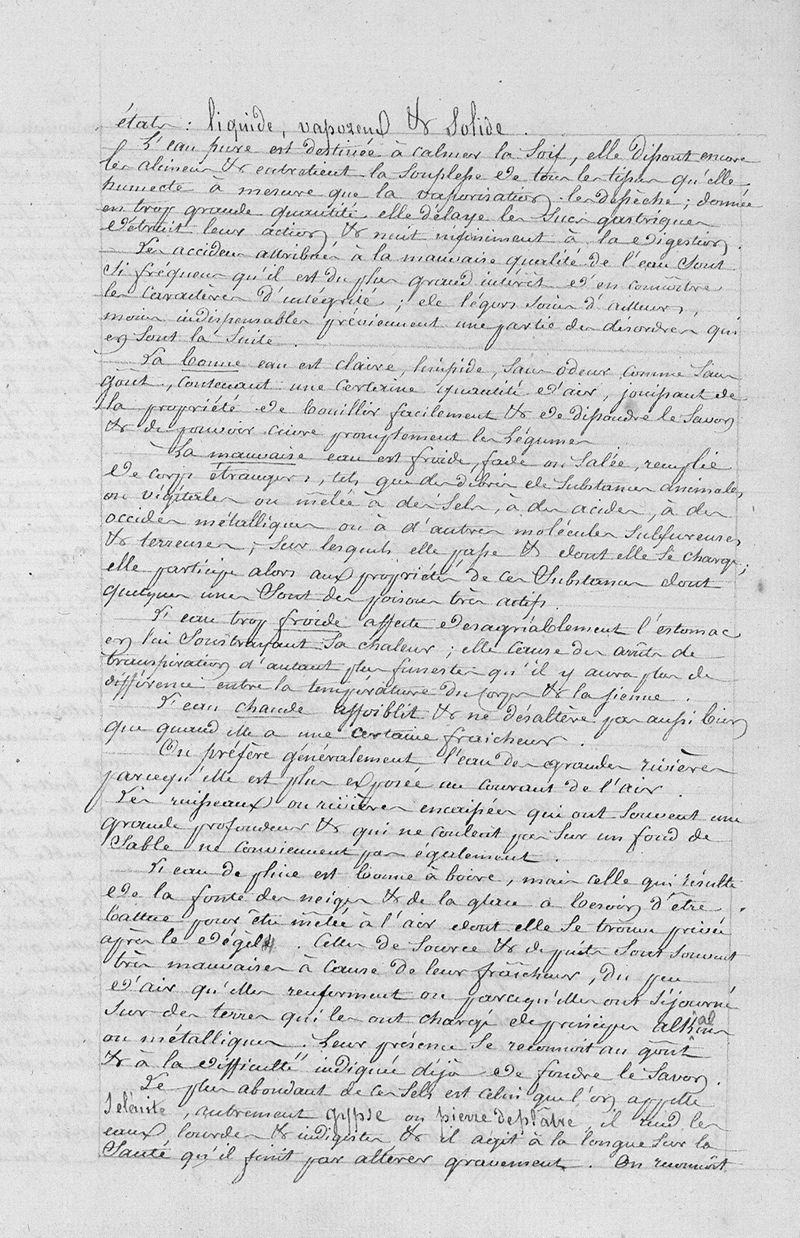 états : liquide, vaporeux & solide.
L'eau pure est destinée à calmer la soif, elle dissout encore
les alimens & entretient la souplesse de tous les tissus qu'elle
humecte à mesure que la vaporisation les dessèche ; donnée
en trop grande quantité elle délaye les sucs gastriques
détruit leur action, & nuit infiniment à la digestion.
Les accidens attribués à la mauvaise qualité de l'eau sont
si fréquens qu'il est du plus grand intérêt d'en connaître
les caractères d'intégrité ; de légers soins d'ailleurs,
moins indispensables préviennent une partie des désordres qui
en sont la suite.
La bonne eau est claire, limpide, sans odeur comme sans
goût, contenant une certaine quantité d'air, jouissant de
la propriété de bouillir facilement & de dissoudre le savon
& de pouvoir cuire promptement les légumes
La mauvaise eau est froide, fade ou salée, remplie
de corps étrangers, tels que des débris de substances animales,
ou végétales ou mêlée à des sels, à des acides, à des
oxides métalliques ou à d'autres molécules sulfureuses
& terreuses, sur lesquels elle passe & dont elle se charge ;
elle participe alors aux propriétés de ces substances dont
quelques unes sont des poisons très actifs.
L'eau trop froide affecte désagréablement l'estomac
en lui soustrayant sa chaleur ; elle cause des arrêts de
transpiration d'autant plus funestes qu'il y aura plus de
différence entre la température du corps & la sienne.
L'eau chaude affoiblit & ne désaltère pas aussi bien
que quand elle a une certaine fraîcheur.
On préfère généralement l'eau des grandes rivières
parcequ'elle est plus exposée au courant de l'air.
Les ruisseaux ou rivières encaissées qui ont souvent une
grande profondeur & qui ne coulent pas sur un fond de
sable ne conviennent pas également.
L'eau de pluie est bonne à boire, mais celle qui résulte
de la fonte des neiges & de la glace a besoin d'être
battue pour être mêlée à l'air dont elle se trouve privée
après le dégel. Celles de source & de puits sont souvent
très mauvaises à cause de leur fraîcheur, du peu
d'air qu'elles renferment ou parcequ'elles ont séjourné
sur des terres qui les ont chargé de principes alkalins
ou métalliques. Leur présence se reconnoit au goût
& à la difficulté indiquée déjà de fondre le savon.
Le plus abondant de ces sels est celui que l'on appelle
sélénite, autrement gypse ou pierre de plâtre, il rend les
eaux, lourdes & indigestes & il agit à la longue sur la
santé qu'il finit par altérer gravement. On reconnoit